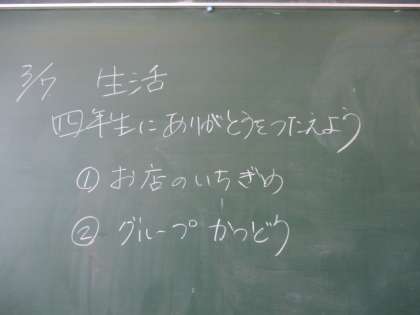 3/7 生活
四年生にありがとうをつたえよう
① お店のいちぎめ
② グループかつどう